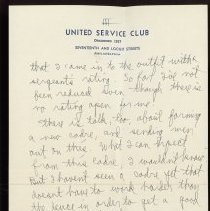 UNITED SERVICE CLUB
ORGANIZED 1917
SEVENTEENTH AND LOCUST STREETS
that I came in to the outfit with
sergeant's rating. So far I've not
been reduced even though there is
no rating open for me.
There is talk, too, about forming
a new cadre, and sending men
out on this. What I can expect
from this cadre, I wouldn't know.
But I haven't seen a cadre yet that
doesn't have to work harder than
the deuce in order to get a good